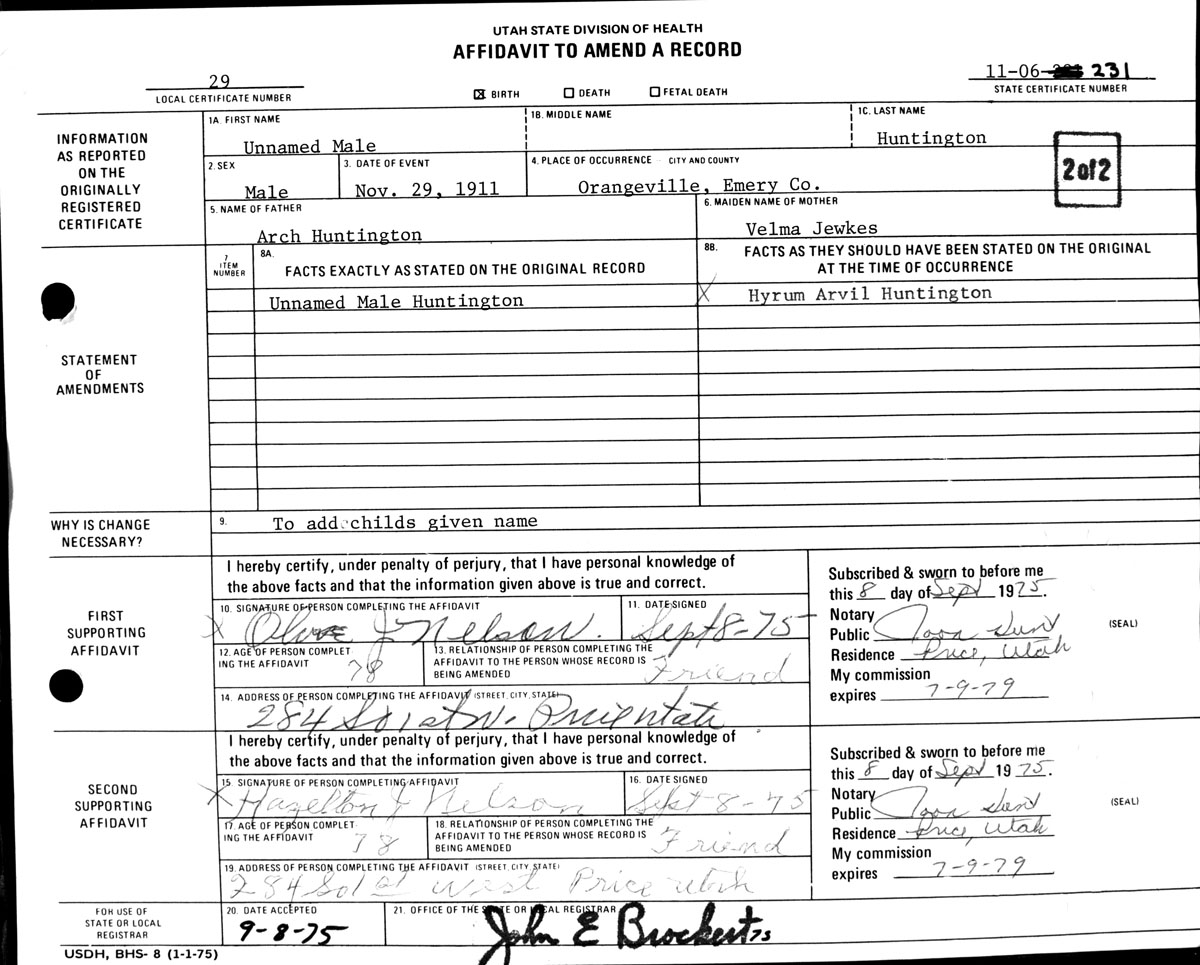 UTAH STATE DIVISION OF HEALTH
AFFIDAVIT TO AMEND A RECORD
29
LOCAL CERTIFICATE NUMBER
☒ BIRTH ☐ DEATH ☐ FETAL DEATH
11-06- 231
STATE CERTIFICATE NUMBER
INFORMATION
AS REPORTED
ON THE
ORIGINALLY
REGISTERED
CERTIFICATE
1A. FIRST NAME
Unnamed Male
1B. MIDDLE NAME
1C. LAST NAME
Huntington
2. SEX
Male
3. DATE OF EVENT
Nov. 29, 1911
4. PLACE OF OCCURRENCE - CITY AND COUNTY
Orangeville, Emery Co.
2 of 2
5. NAME OF FATHER
Arch Huntington
6. MAIDEN NAME OF MOTHER
Velma Jewkes
STATEMENT
OF
AMENDMENTS
7
ITEM
NUMBER
8A.
FACTS EXACTLY AS STATED ON THE ORIGINAL RECORD
8B. FACTS AS THEY SHOULD HAVE BEEN STATED ON THE ORIGINAL
AT THE TIME OF OCCURRENCE
Unnamed Male Huntington
X Hyrum Arvil Huntington
WHY IS CHANGE
NECESSARY?
9. To add childs given name
FIRST
SUPPORTING
AFFIDAVIT
I hereby certify, under penalty of perjury, that I have personal knowledge of
the above facts and that the information given above is true and correct.
10. SIGNATURE OF PERSON COMPLETING THE AFFIDAVIT
X Olive J Nelson.
11. DATE SIGNED
Sept 8-75
12. AGE OF PERSON COMPLET-
ING THE AFFIDAVIT
78
13. RELATIONSHIP OF PERSON COMPLETING THE
AFFIDAVIT TO THE PERSON WHOSE RECORD IS
BEING AMENDED
Friend
14. ADDRESS OF PERSON COMPLETING THE AFFIDAVIT (STREET, CITY, STATE)
284 So 1st W.
Subscribed & sworn to before me
this 8 day of Sept 1975.
Notary
Public
Residence Price, Utah
My commission
expires 7-9-79
(SEAL)
SECOND
SUPPORTING
AFFIDAVIT
I hereby certify, under penalty of perjury, that I have personal knowledge of
the above facts and that the information given above is true and correct.
15. SIGNATURE OF PERSON COMPLETING AFFIDAVIT
X Hazelton J Nelson
16. DATE SIGNED
Sept 8-75
17. AGE OF PERSON COMPLET-
ING THE AFFIDAVIT
78
18. RELATIONSHIP OF PERSON COMPLETING THE
AFFIDAVIT TO THE PERSON WHOSE RECORD IS
BEING AMENDED
Friend
19. ADDRESS OF PERSON COMPLETING THE AFFIDAVIT (STREET, CITY, STATE)
284 So 1st West Price Utah
Subscribed & sworn to before me
this 8 day of Sept 1975.
Notary
Public
Residence Price, Utah
My commission
expires 7-9-79
(SEAL)
FOR USE OF
STATE OR LOCAL
REGISTRAR
20. DATE ACCEPTED
9-8-75
21. OFFICE OF THE STATE OR LOCAL REGISTRAR
John E Brockert
USDH, BHS- 8 (1-1-75)